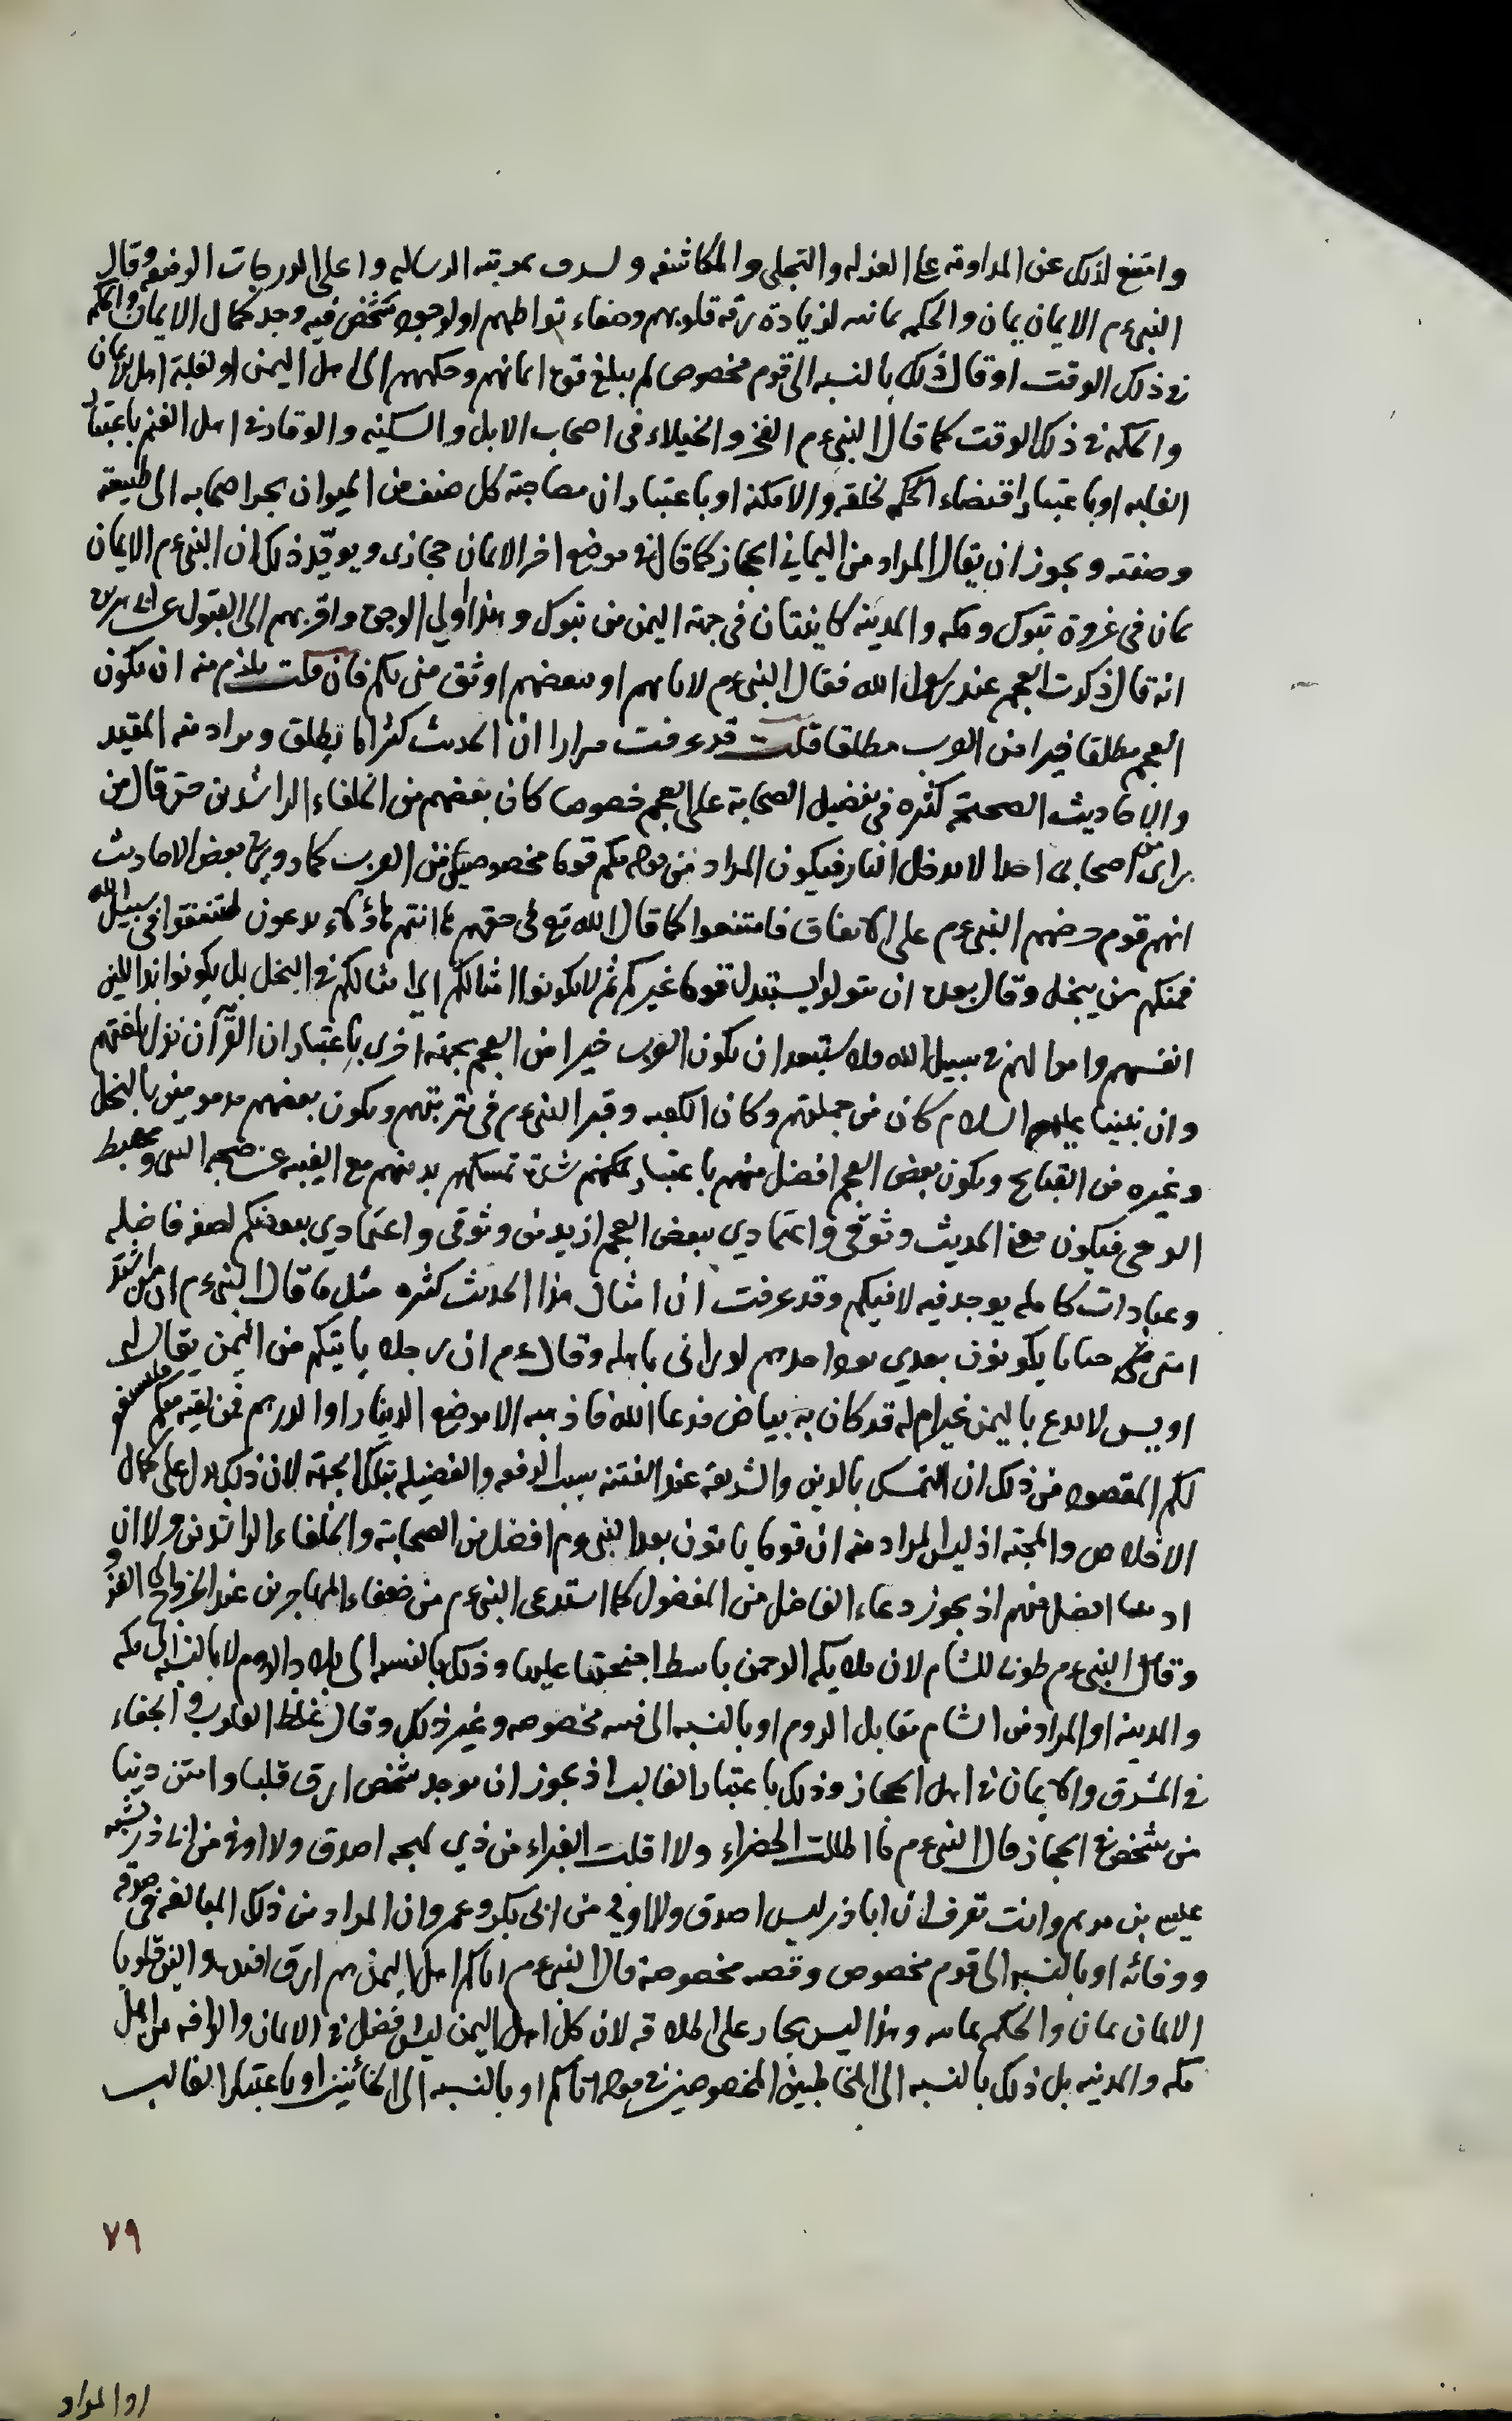 وامتنع لذلك عن المداومة على العزله والتجلى والمكاشفه و بمرتبه الرساله واعلى الدرجات الرفيعه وقال
النبى ءم الايمان يمان والحكمه يمانيه لزيادة رقة قلوبهم وصفاء بواطنهم او لوجود شخص فيه وجد كمال الايمان والحكمه
فى ذلك الوقت او قال ذلك بالنسبه الى قوم مخصوص لم يبلغ قوة ايمانهم وحكمهم الى اهل اليمن او لغلبة اهل الايمان
والحكمه فى ذلك الوقت كما قال النبى ءم الفخر والخيلاء فى اصحاب الابل والسكينه والوقار فى اهل الغنم باعتبار
الغلبه او باعتبار اقتضاء الحكم لخلقه والامكنه او باعتبار ان مصاحبة كل صنف من الحيوان يجر اصحابه الى طبيعته
وصفته ويجوز ان يقال المراد من اليمانى الحجاز كما قال فى موضع اخر الايمان حجازى ويويد ذلك ان النبى ءم الايمان
يمان فى غزوة تبوك ومكه والمدينه كاينتان فى جهة اليمن من تبوك وهذا اولى الوجوه واقربهم الى القبول عن ابى هريره
انه قال ذكرت العجم عند رسول الله فقال النبى ءم لانا بهم او ببعضهم اوثق منى بكم فان قلت يلزم منه ان يكون
العجم مطلقا خيرا من العرب مطلقا قلت قد عرفت مرارا ان الحديث كثيرا ما يطلق ويراد منه المقيد
والاحاديث الصحيحه كثيره فى تفضيل الصحابة على العجم خصوصا كان بعضهم من الخلفاء الراشدين حتى قال من
راى من اصحابى احدا لا يدخل النار فيكون المراد من قوله بكم قوما مخصوصين من العرب كما روى فى بعض الاحاديث
انهم قوم حرضهم النبى ءم على الانفاق فامتنعوا كما قال الله تع فى حقهم ها انتم هاؤلاء تدعون لتنفقوا فى سبيل الله
فمنكم من يبخل وقال بعده ان تتولوا يستبدل قوما غيركم ثم لا يكونوا امثالكم اى امثالكم فى البخل بل يكونوا باذلين
انفسهم واموالهم فى سبيل الله ولا يستبعد ان يكون العرب خيرا من العجم بجهة اخرى باعتبار ان القرآن نزل بلغتهم
وان نبينا عليه السلام كان من جملتهم وكان الكعبه وقبر النبى ءم فى تربتهم ويكون بعضهم مذمومين بالبخل
وغيره من القبائح ويكون بعض العجم افضل منهم باعتبار شدة تمسكهم بدينهم مع الغيبه عن صحبه النبى ومهبط
الوحى فيكون معنى الحديث وثوقى واعتمادى ببعض العجم ازيد من وثوقى واعتمادى ببعضكم لصفه فاضله
وعبادات كامله يوجد فيه لا فيكم وقد عرفت ان امثال هذا الحديث كثيره مثل ما قال النبى ءم ان من اشد
امتى لى حبا ناسا يكونون بعدى يود احدهم لو رآنى باهله وقال ءم ان رجلا ياتيكم من اليمن يقال له
اويس لا يدع باليمن غير ام له قد كان به بياض فدعا الله فاذهبه الا موضع الدينار او الدرهم فمن لقيه منكم فليستغفر
لكم المقصود من ذلك ان التمسك بالدين والشريعه عند الفتنه سبب الرفعه والفضيله بتلك الجهة لان ذلك يدل على كمال
الاخلاص والمحبه اذ ليس المراد منه ان قوما ياتون بعد النبى ءم افضل من الصحابة والخلفاء الراشدين ولا ان
اويسا افضل منهم اذ يجوز دعاء الفاضل من المفضول كما استدعى النبى ءم من ضعفاء المهاجرين عند الخروج الى الغزو
وقال النبى ءم طوبى للشام لان ملايكه الرحمن باسطه اجنحتها عليها وذلك بالنسبه الى بلاد الروم لا بالنسبه الى مكه
والمدينه او المراد من الشام مقابل الروم او بالنسبه الى مخصوصه وغير ذلك وقال غلظ القلوب والجفاء
فى المشرق والايمان فى اهل الحجاز وذلك باعتبار الغالب اذ يجوز ان يوجد شخص ارق قلبا وامتن دينا
من شخص فى الحجاز قال النبى ءم ما اظلت الخضراء ولا اقلت الغبراء من ذى لهجه اصدق ولا اوفى من ابى ذر شبيه
عيسى بن مريم وانت تعرف ان اباذر ليس اصدق ولا اوفى من ابى بكر وعمر وان المراد من ذلك المبالغه فى صدقه
ووفائه او بالنسبه الى قوم مخصوص وقصه مخصوصة قال النبى ءم اتاكم اهل اليمن هم ارق افئده والين قلوبا
الايمان يمان والحكمه يمانيه وهذا ليس بجار على اطلاقه لان كل اهل اليمن ليس افضل فى الايمان والرافه من اهل
مكه والمدينه بل ذلك بالنسبه الى المخاطبين المخصوصين فى قوله اتاكم او بالنسبه الى الخائنين او باعتبار الغالب
٧٩
او المراد